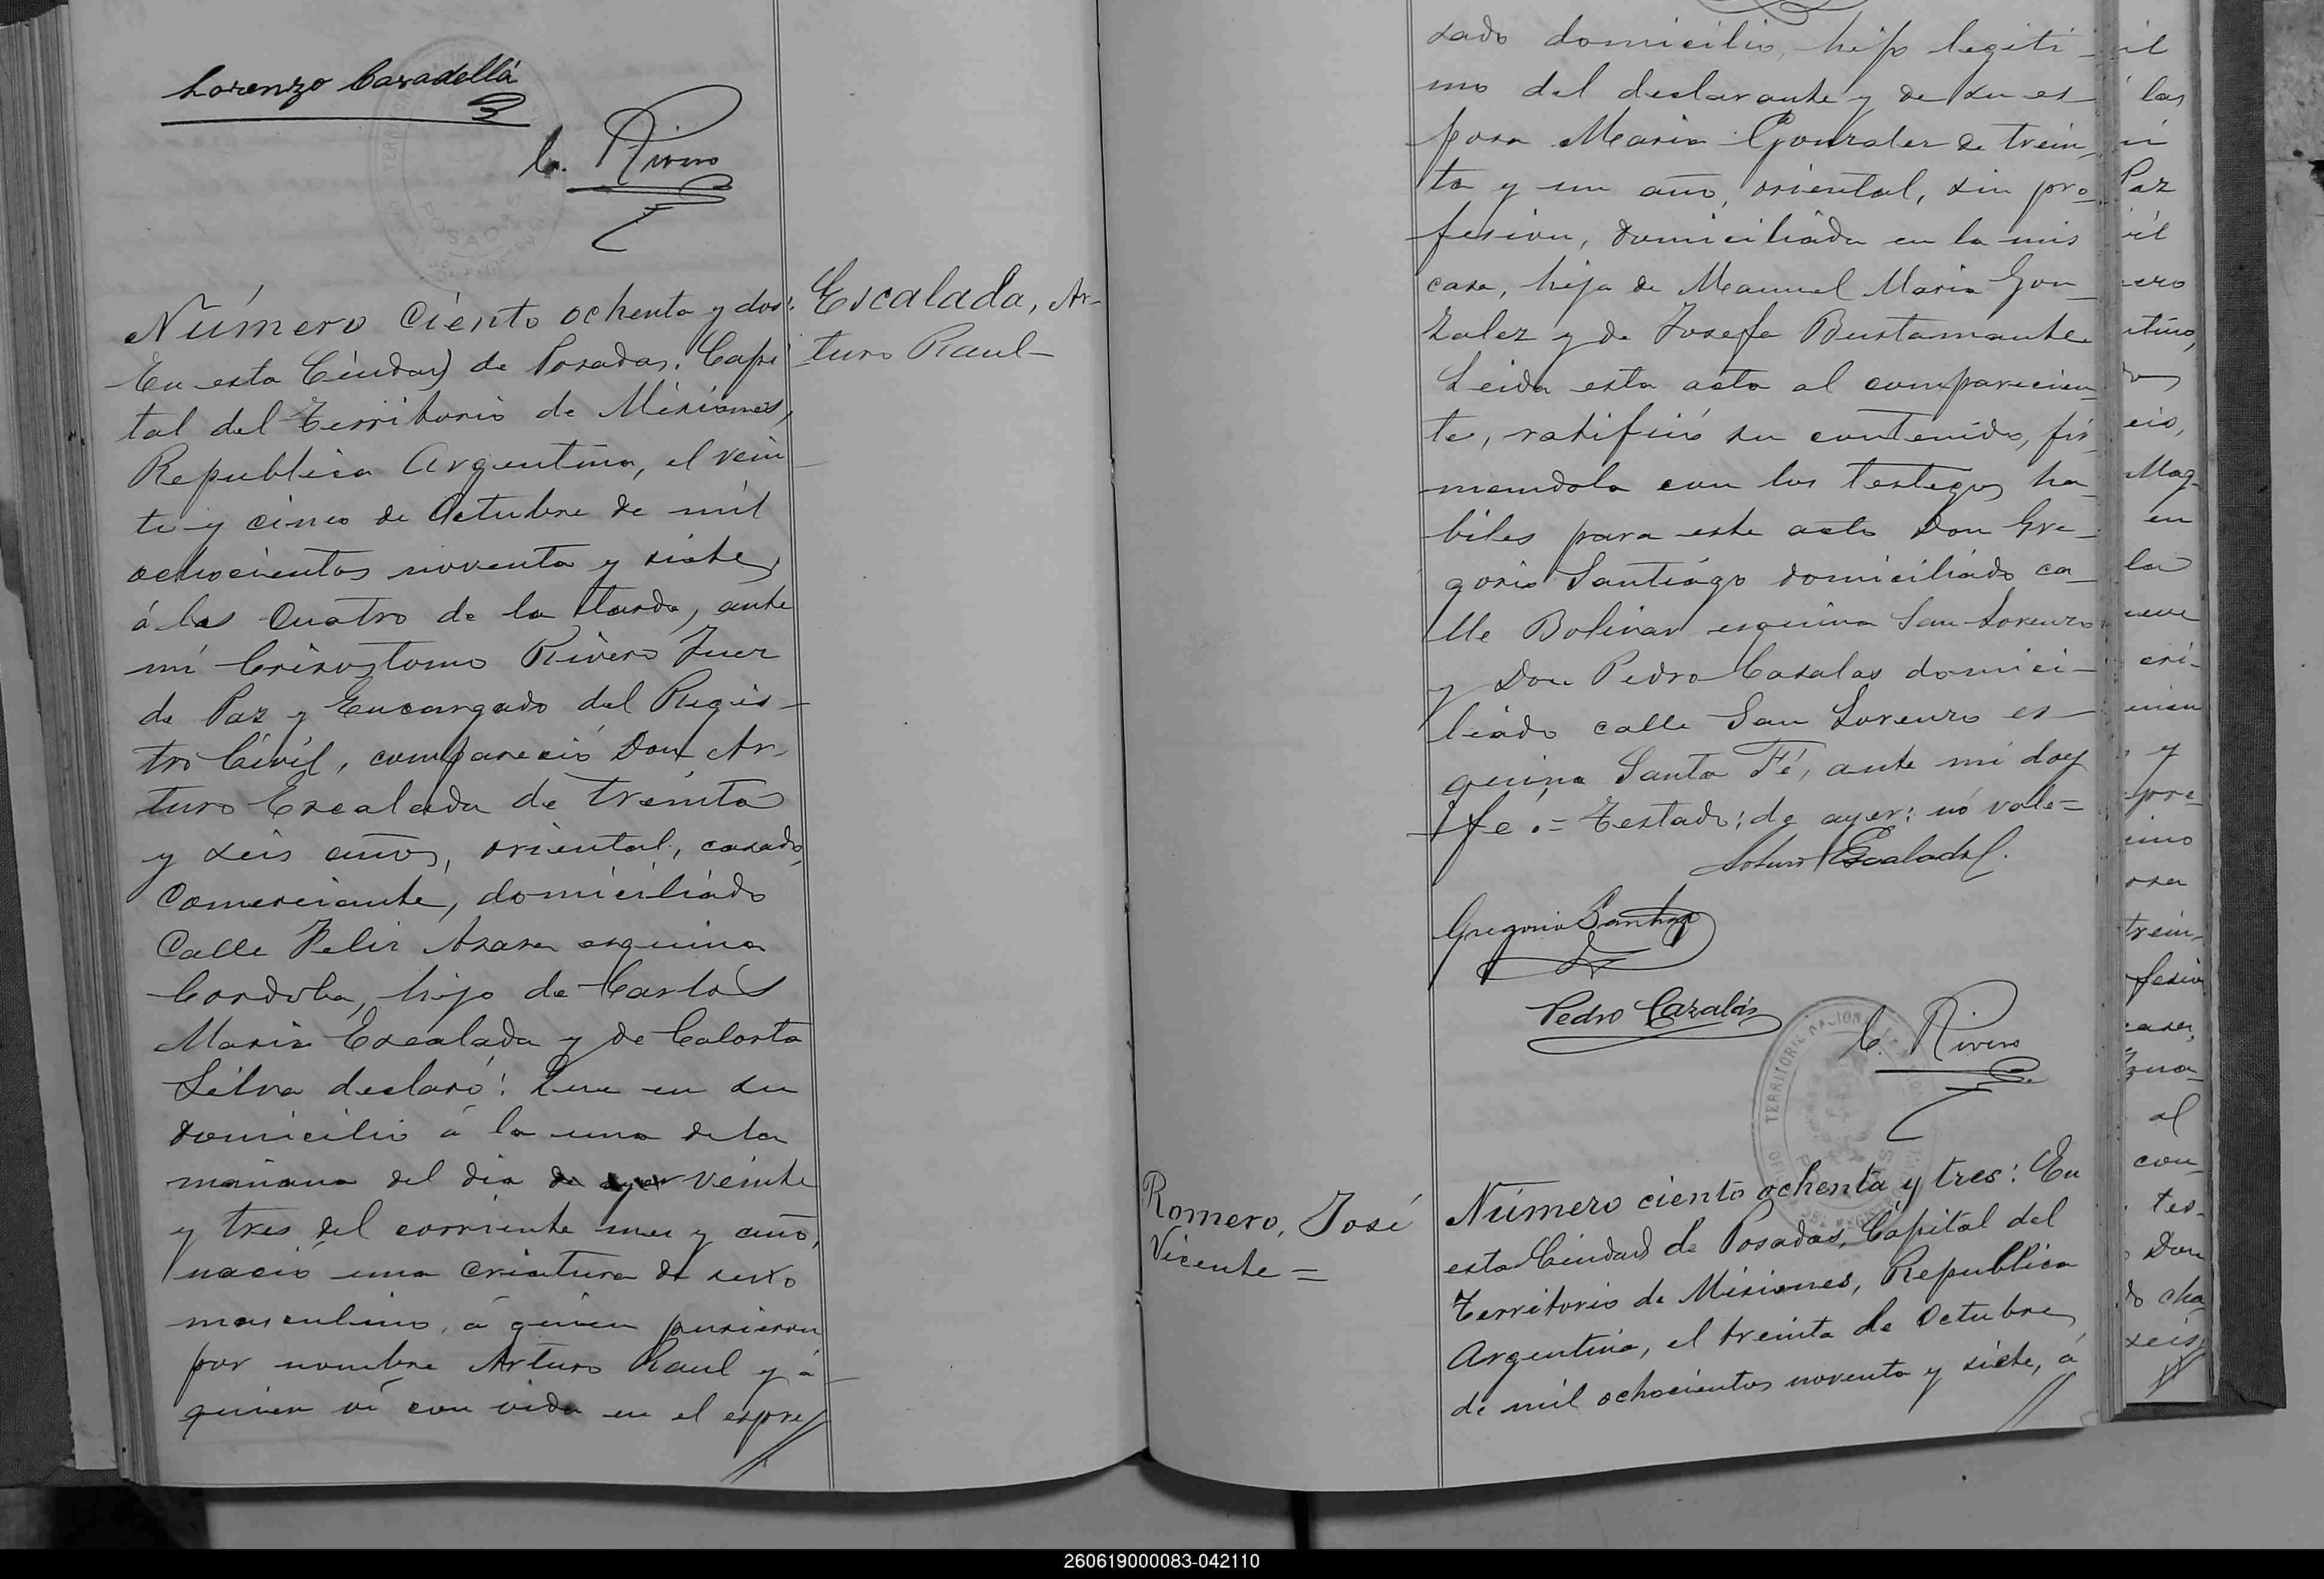 Lorenzo Casadellá
C. Rivero
Número Ciento ochenta y dos:
En esta Ciudad de Posadas, Capi
tal del Territorio de Misiones,
Republica Argentina, el vein
te y cinco de Octubre de mil
ochocientos noventa y siete,
á las Cuatro de la tarde, ante
mi Crisostomo Rivero Juez
de Paz y Encargado del Regis-
tro Civil, compareció Don Ar-
turo Escalada de treinta
y seis años, oriental, casado,
Comerciante, domiciliado
Calle Felix Azara esquina
Cordoba, hijo de Carlos
Maria Escalada y de Calosta
Silva declaró: Que en su
domicilio á la una de la
mañana del dia de ayer veinte
y tres del corriente mes y año,
nació una criatura de sexo
masculino, á quien pusieron
por nombre Arturo Raul y á
quien ví con vida en el expre
Escalada, Ar-
turo Raul-
sado domicilio, hijo legiti-
mo del declarante y de su es
posa Maria Gonzalez de trein-
ta y un año, oriental, sin pro
fesion, domiciliada en la mis
casa, hija de Manuel Maria Gon
zalez y de Josefa Bustamante
Leida esta acta al comparecien
te, ratificó su contenido, fir
mandola con los testigos ha-
biles para este acto Don Gre-
gorio Santiago domiciliado ca-
lle Bolivar esquina San Lorenzo
y Don Pedro Casalas domici-
liado calle San Lorenzo es-
quina Santa Fé, ante mi doy
fé.= Testado: de ayer: nó vale=
Arturo Escalada
Gregorio Santiago
Pedro Cazalás
C. Rivero
Romero, José
Vicente=
Número ciento ochenta y tres: En
esta Ciudad de Posadas, Capital del
Territorio de Misiones, Republica
Argentina, el treinta de Octubre
de mil ochocientos noventa y siete, á
il
las
Paz
Mag-
en
la
y
trein-
al
con-
tes-
Don
cha
seis,
260619000083-042110